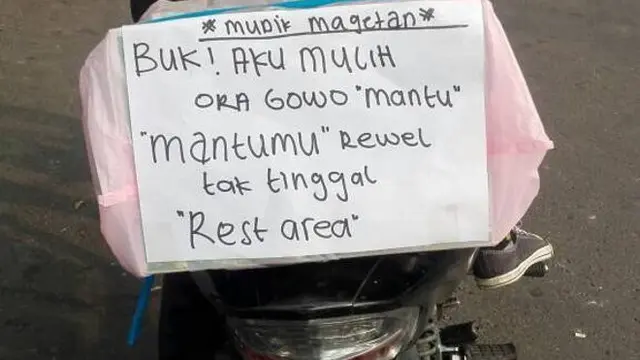 *mudik magetan*
BUK! AKU MULIH
ORA GOWO "mantu"
"mantumu" Rewel
tak tinggal
"Rest area"